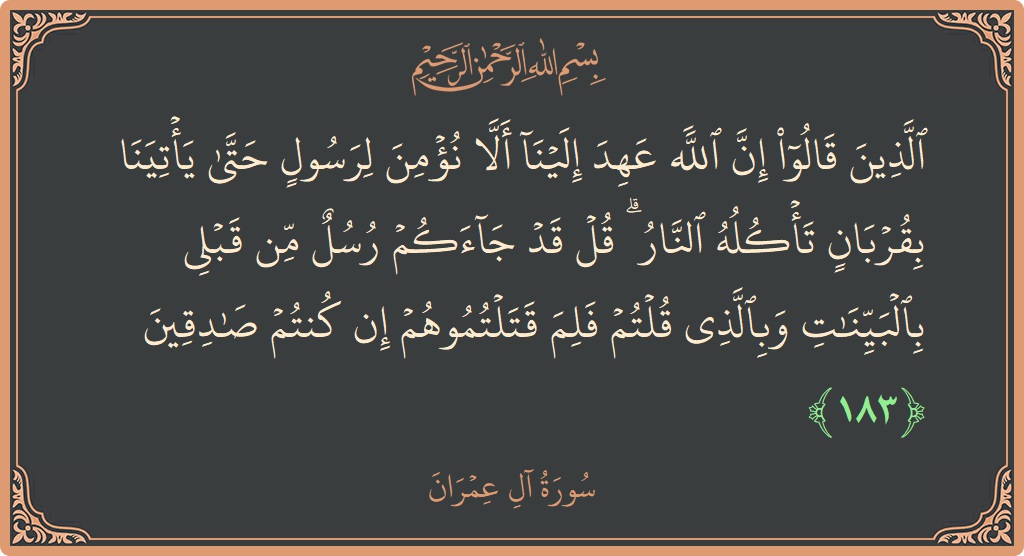 بِسْمِ ٱللَّهِ ٱلرَّحْمَٰنِ ٱلرَّحِيمِ
ٱلَّذِينَ قَالُوٓا۟ إِنَّ ٱللَّهَ عَهِدَ إِلَيْنَآ أَلَّا نُؤْمِنَ لِرَسُولٍ حَتَّىٰ يَأْتِيَنَا
بِقُرْبَانٍ تَأْكُلُهُ ٱلنَّارُ ۗ قُلْ قَدْ جَآءَكُمْ رُسُلٌ مِّن قَبْلِى
بِٱلْبَيِّنَٰتِ وَبِٱلَّذِى قُلْتُمْ فَلِمَ قَتَلْتُمُوهُمْ إِن كُنتُمْ صَٰدِقِينَ
﴿١٨٣﴾
سُورَةُ آلِ عِمْرَانَ